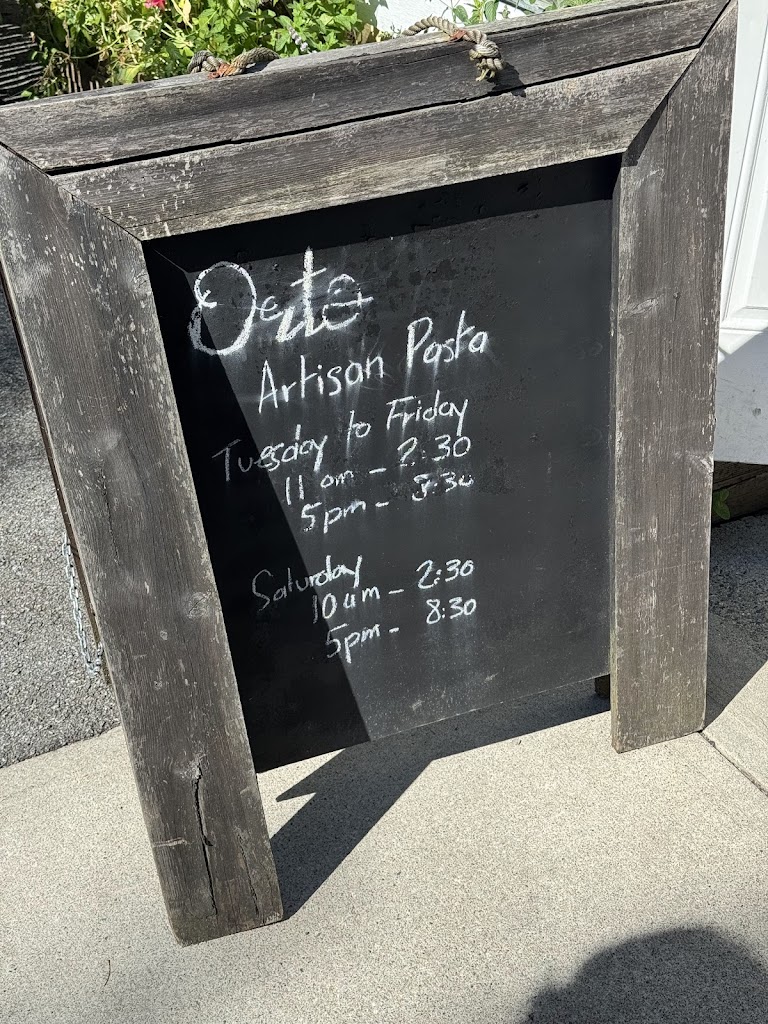 Artisan Pasta
Tuesday to Friday
11 am - 2:30
5pm - 8:30
Saturday
10am - 2:30
5pm - 8:30